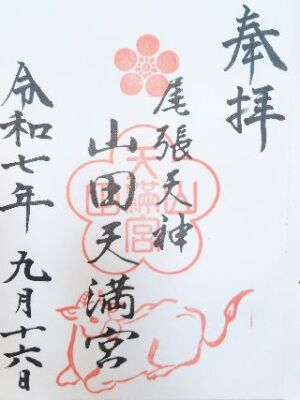 奉拝
尾張天神
山田天満宮
山田天満宮
令和七年 九月十六日